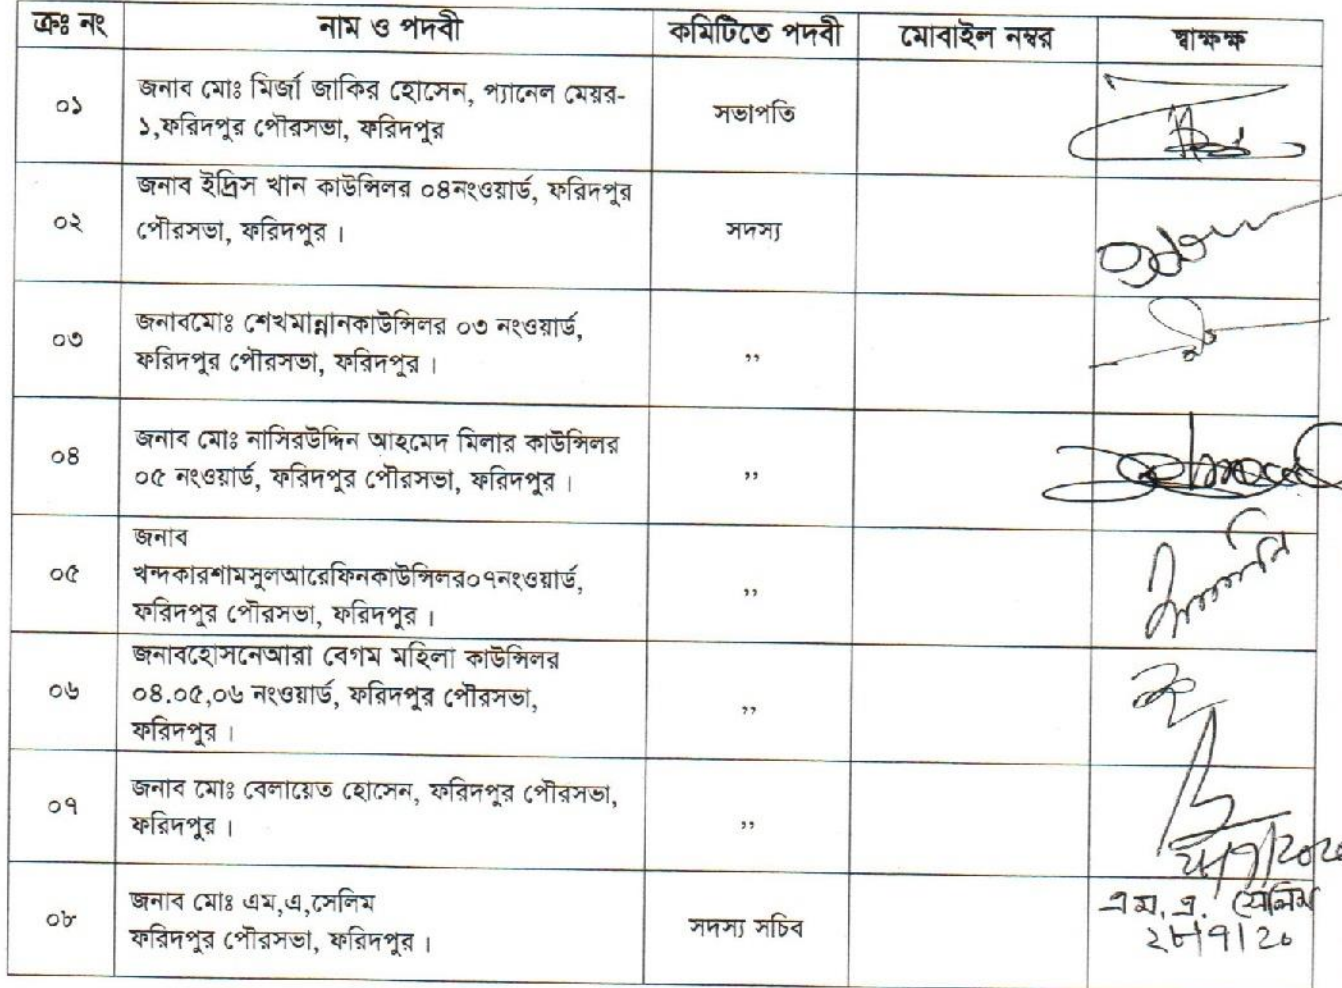 ক্রঃ নং নাম ও পদবী কমিটিতে পদবী মোবাইল নম্বর স্বাক্ষক্ষ
০১ জনাব মোঃ মির্জা জাকির হোসেন, প্যানেল মেয়র-
১,ফরিদপুর পৌরসভা, ফরিদপুর
সভাপতি
জনাব ইদ্রিস খান কাউন্সিলর ০৪নংওয়ার্ড, ফরিদপুর
০২ পৌরসভা, ফরিদপুর। সদস্য
জনাবমোঃ শেখমান্নানকাউন্সিলর ০৩ নংওয়ার্ড,
০৩ ফরিদপুর পৌরসভা, ফরিদপুর। ,,
জনাব মোঃ নাসিরউদ্দিন আহমেদ মিলার কাউন্সিলর
০৪ ০৫ নংওয়ার্ড, ফরিদপুর পৌরসভা, ফরিদপুর। ,,
জনাব
০৫ খন্দকারশামসুলআরেফিনকাউন্সিলর০৭নংওয়ার্ড, ,,
ফরিদপুর পৌরসভা, ফরিদপুর।
জনাবহোসনেআরা বেগম মহিলা কাউন্সিলর
০৬ ০৪.০৫,০৬ নংওয়ার্ড, ফরিদপুর পৌরসভা, ,,
ফরিদপুর।
জনাব মোঃ বেলায়েত হোসেন, ফরিদপুর পৌরসভা,
০৭ ফরিদপুর। ,,
জনাব মোঃ এম,এ,সেলিম
০৮ ফরিদপুর পৌরসভা, ফরিদপুর। সদস্য সচিব
এম. এ. সেলিম
২৮/৭/২০